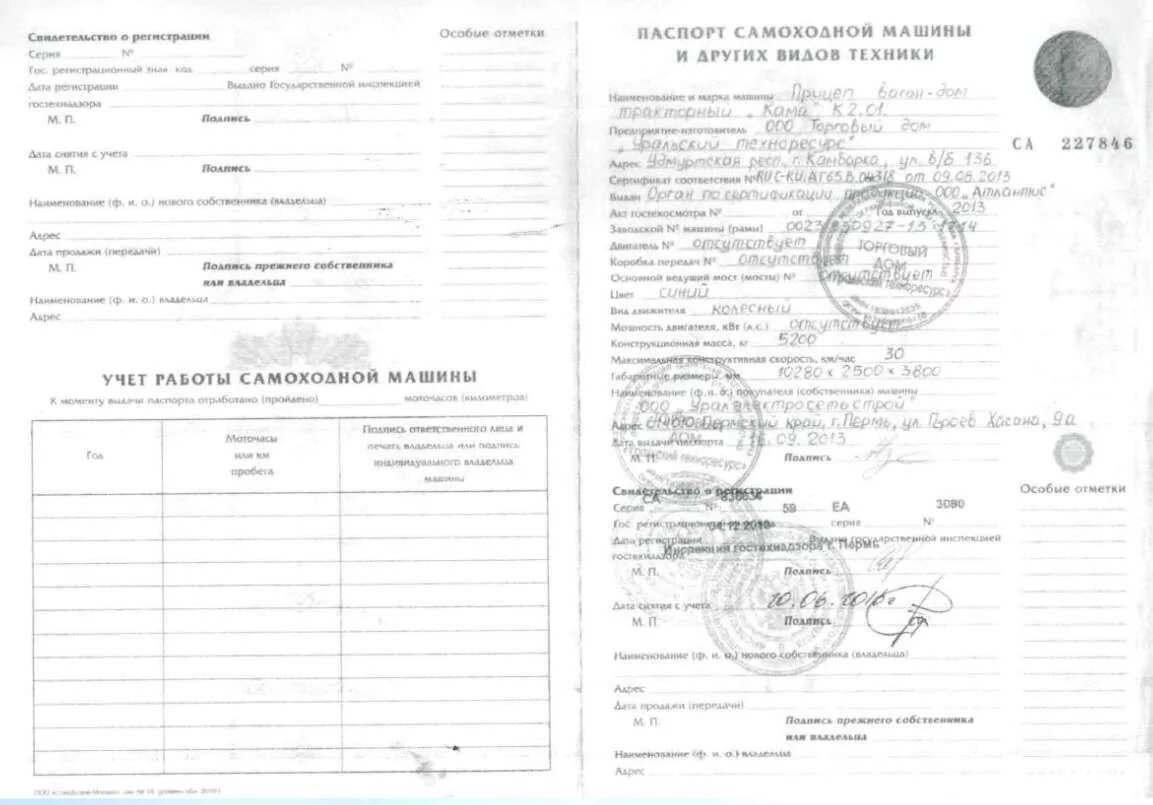 Свидетельство о регистрации
Особые отметки
Серия № 
Гос. регистрационный знак код серия №
Дата регистрации Выдано Государственной инспекцией
гостехнадзора
М. П. Подпись
Дата снятия с учета
М. П. Подпись
Наименование (ф. и. о.) нового собственника (владельца)
Адрес
Дата продажи (передачи)
М. П. Подпись прежнего собственника
или владельца
Наименование (ф. и. о.) владельца
Адрес
УЧЕТ РАБОТЫ САМОХОДНОЙ МАШИНЫ
К моменту выдачи паспорта отработано (пройдено) моточасов (километров)
Год
Моточасы
или км
пробега
Подпись ответственного лица и
печать владельца или подпись
индивидуального владельца
машины
ПАСПОРТ САМОХОДНОЙ МАШИНЫ
И ДРУГИХ ВИДОВ ТЕХНИКИ
СА 227846
Наименование и марка машины Прицеп вагон-дом
тракторный "Кама" К 2.01.
Предприятие-изготовитель ООО Торговый дом
"Уральский техноресурс"
Адрес Удмуртская респ, г. Камбарка, ул. В/Б 136
Сертификат соответствия № от 09.08.2013
Выдан Орган по сертификации продукции ООО "Атлантис"
Акт гостехосмотра № от Год выпуска 2013
Заводской № машины (рамы)
Двигатель № отсутствует
Коробка передач № отсутствует
Основной ведущий мост (мосты) № отсутствует
Цвет синий
Вид движителя колесный
Мощность двигателя, кВт (л.с.) отсутствует
Конструкционная масса, кг 5200
Максимальная конструктивная скорость, км/час 30
Габаритные размеры, мм 10280 x 2500 x 3800
Наименование (ф.и.о.) покупателя (собственника) машины
ООО "Уралэлектросетьстрой"
Адрес Пермский край, г. Пермь, ул. Героев Хасана, 9а
Дата выдачи паспорта 09.2013
М. П. Подпись
ТОРГОВЫЙ
ДОМ
Свидетельство о регистрации
Особые отметки
СА 59 ЕА 3080
Серия №
Гос. регистрационный серия №
04.12.2013
Дата регистрации Выдано государственной инспекцией
Инспекция гостехнадзора г. Пермь
гостехнадзора
М. П. Подпись
Дата снятия с учета 10.06.2016г
М. П. Подпись
Наименование (ф. и. о.) нового собственника (владельца)
Адрес
Дата продажи (передачи)
М. П. Подпись прежнего собственника
или владельца
Наименование (ф. и. о.) владельца
Адрес